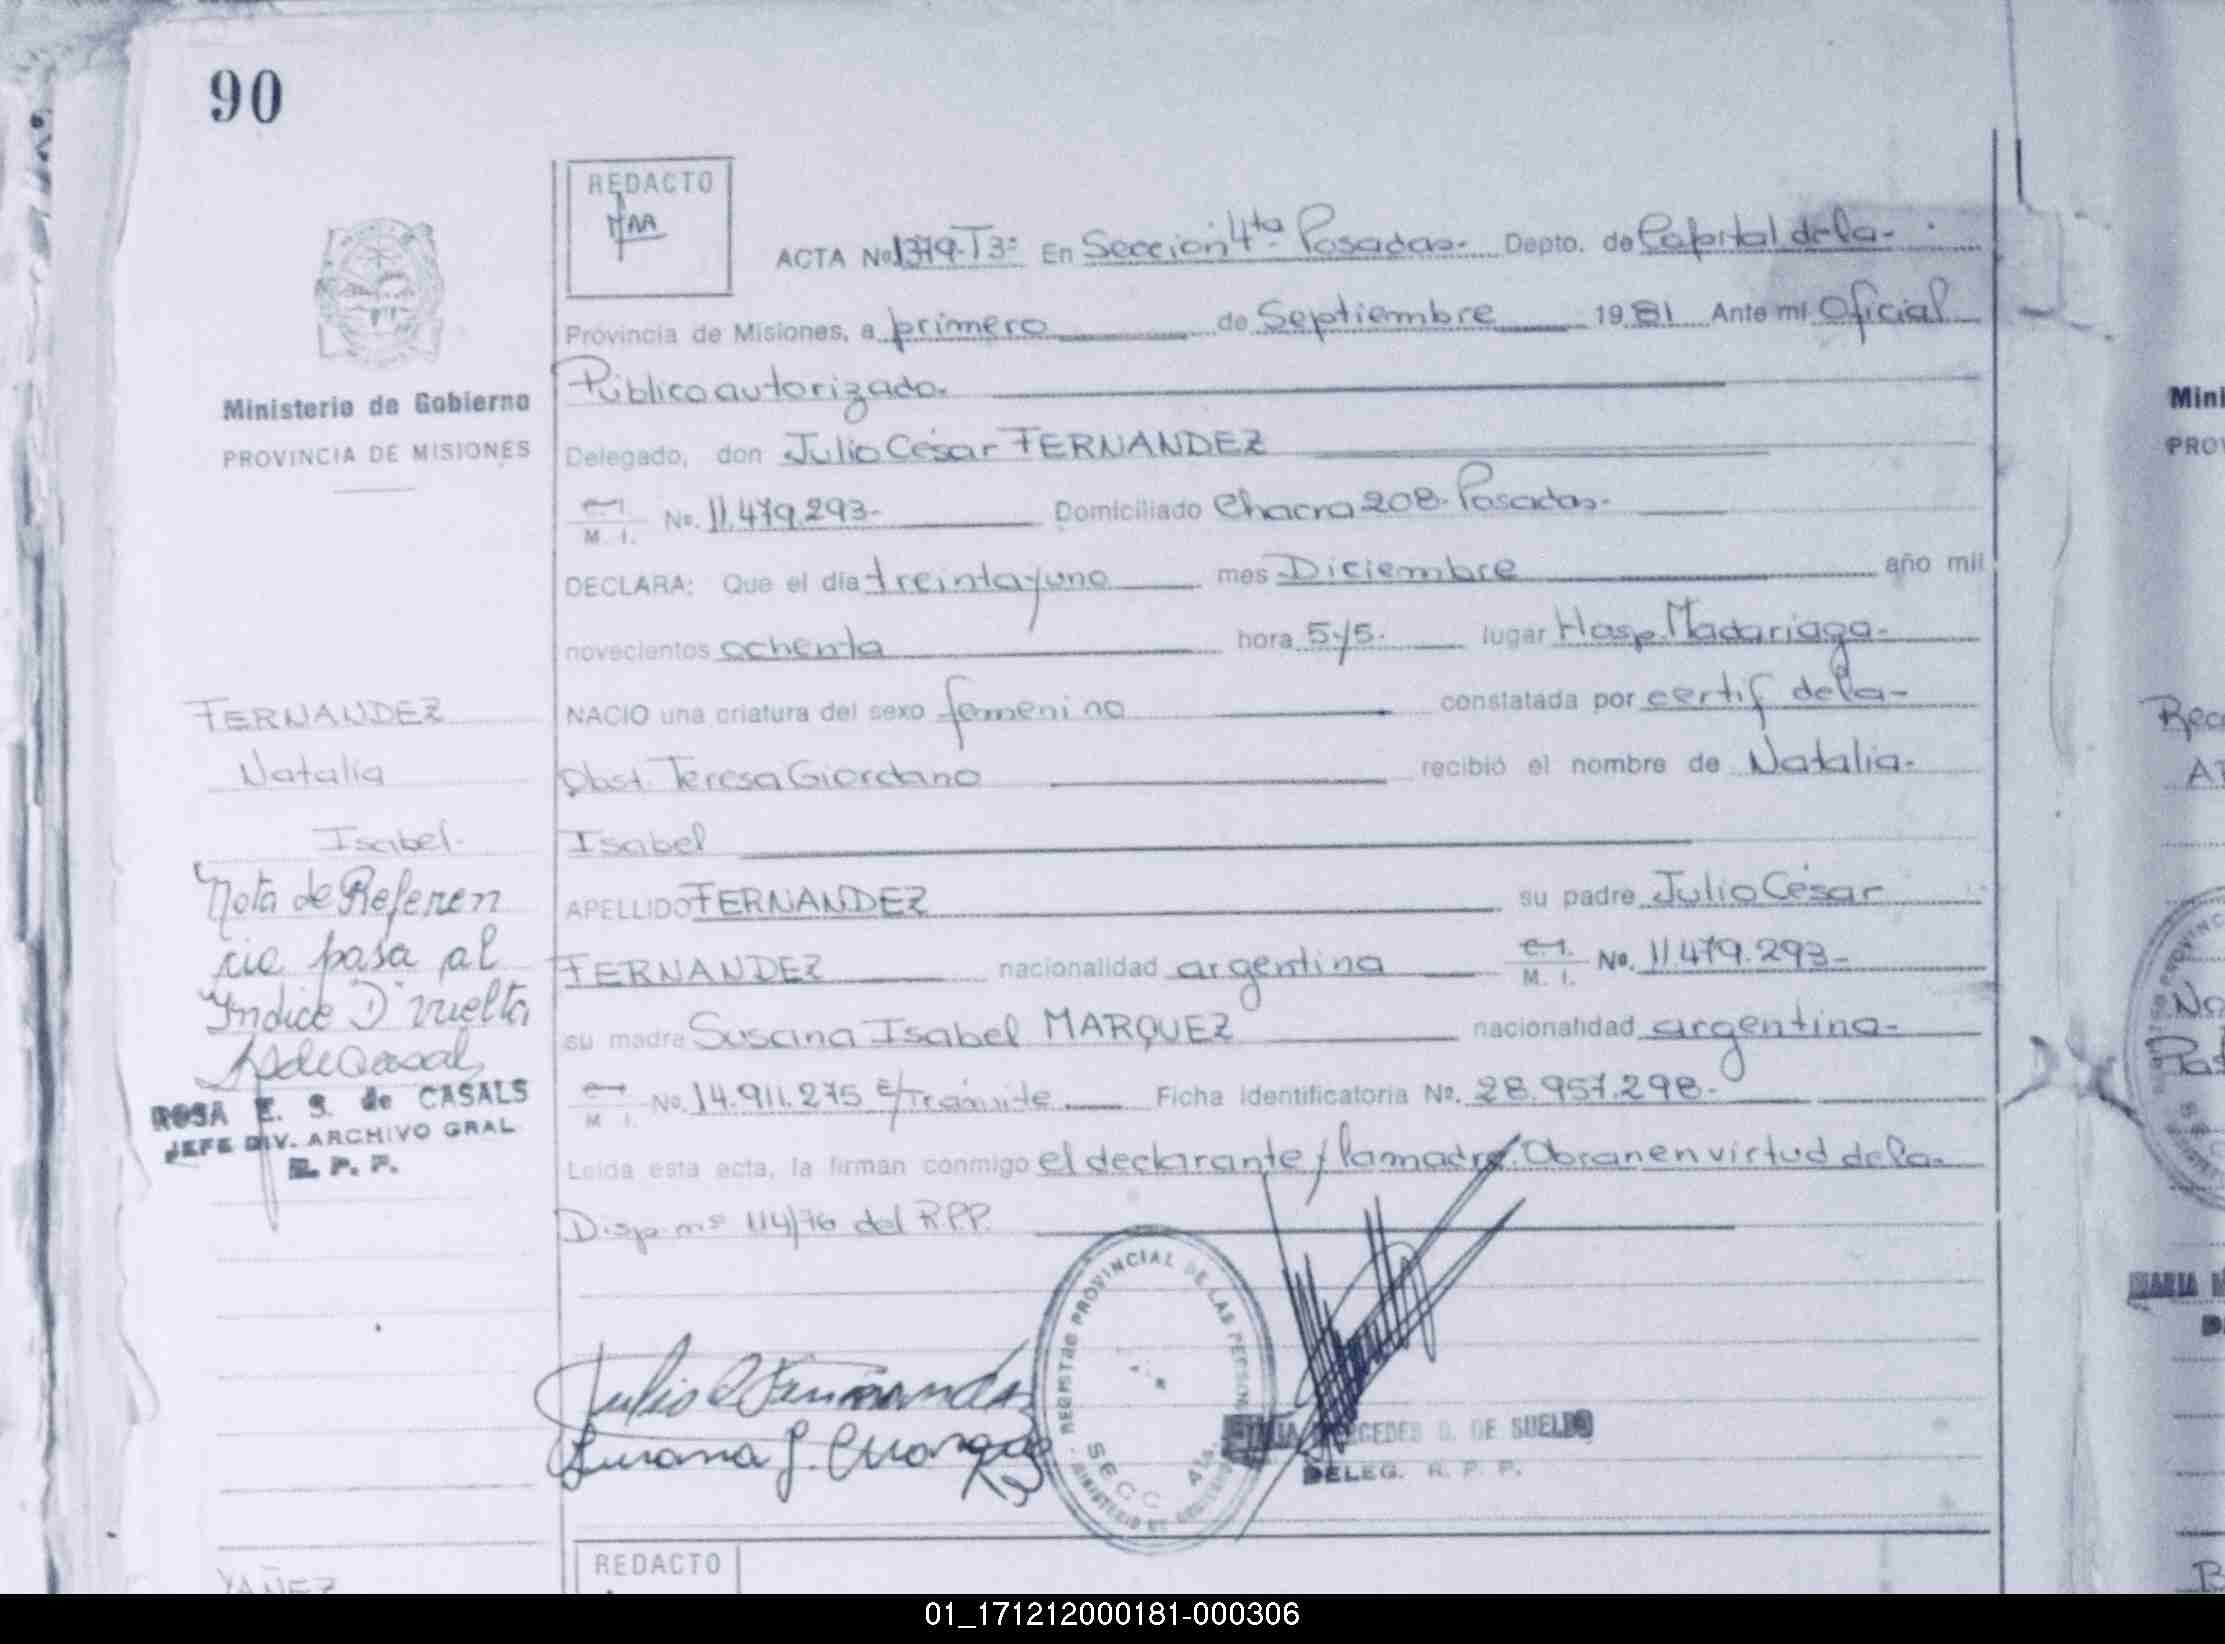 90
REDACTO
ACTA No 1379-T3º En Sección 4ta Posadas- Depto. de Capital de la-
Provincia de Misiones, a primero de Septiembre 1981 Ante mí Oficial
Público autorizado.
Ministerio de Gobierno
PROVINCIA DE MISIONES
Delegado, don Julio César FERNANDEZ
M. I. No. 11.479.293- Domiciliado Chacra 208- Posadas-
DECLARA: Que el día treinta y uno mes Diciembre año mil
novecientos ochenta hora 5y5- lugar Hosp. Madariaga-
NACIO una criatura del sexo femenino constatada por certif de la-
Obst. Teresa Giordano recibió el nombre de Natalia-
Isabel
APELLIDO FERNANDEZ su padre Julio César
FERNANDEZ nacionalidad argentina M. I. No. 11.479.293-
su madre Susana Isabel MARQUEZ nacionalidad argentina-
M. I. No. 14.911.275 E/Trámite Ficha identificatoria No. 28.957.298-
Leída esta acta, la firman conmigo el declarante y la madre. Obran en virtud de la-
Disp. nº 114/76 del R.P.P.
FERNANDEZ
Natalia
Isabel-
Nota de Referen
cia pasa al
Indice D vuelta
ROSA E. S. de CASALS
JEFE DIV. ARCHIVO GRAL
R. P. P.
Julio C Fernandez
Susana I. Marquez
REGISTRO PROVINCIAL DE LAS PERSONAS
SECC 4ta.
MINISTERIO DE GOBIERNO
MERCEDES D. DE SUELDO
DELEG. R. P. P.
REDACTO
YAÑEZ
Mini
PROV
01_171212000181-000306